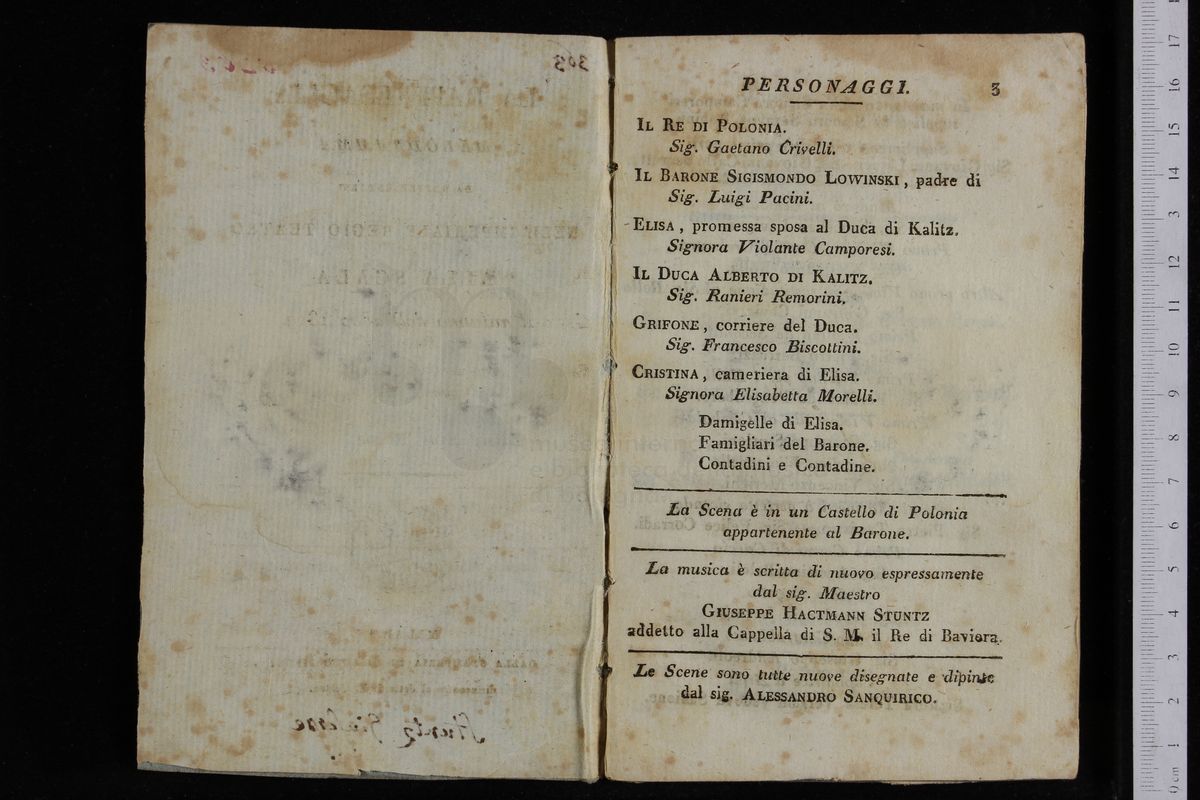 303
PERSONAGGI.
3
IL RE DI POLONIA.
Sig. Gaetano Crivelli.
IL BARONE SIGISMONDO LOWINSKI, padre di
Sig. Luigi Pacini.
ELISA, promessa sposa al Duca di Kalitz.
Signora Violante Camporesi.
IL DUCA ALBERTO DI KALITZ.
Sig. Ranieri Remorini.
GRIFONE, corriere del Duca.
Sig. Francesco Biscottini.
CRISTINA, cameriera di Elisa.
Signora Elisabetta Morelli.
Damigelle di Elisa.
Famigliari del Barone.
Contadini e Contadine.
La Scena è in un Castello di Polonia
appartenente al Barone.
La musica è scritta di nuovo espressamente
dal sig. Maestro
GIUSEPPE HACTMANN STUNTZ
addetto alla Cappella di S. M. il Re di Baviera.
Le Scene sono tutte nuove disegnate e dipinte
dal sig. ALESSANDRO SANQUIRICO.